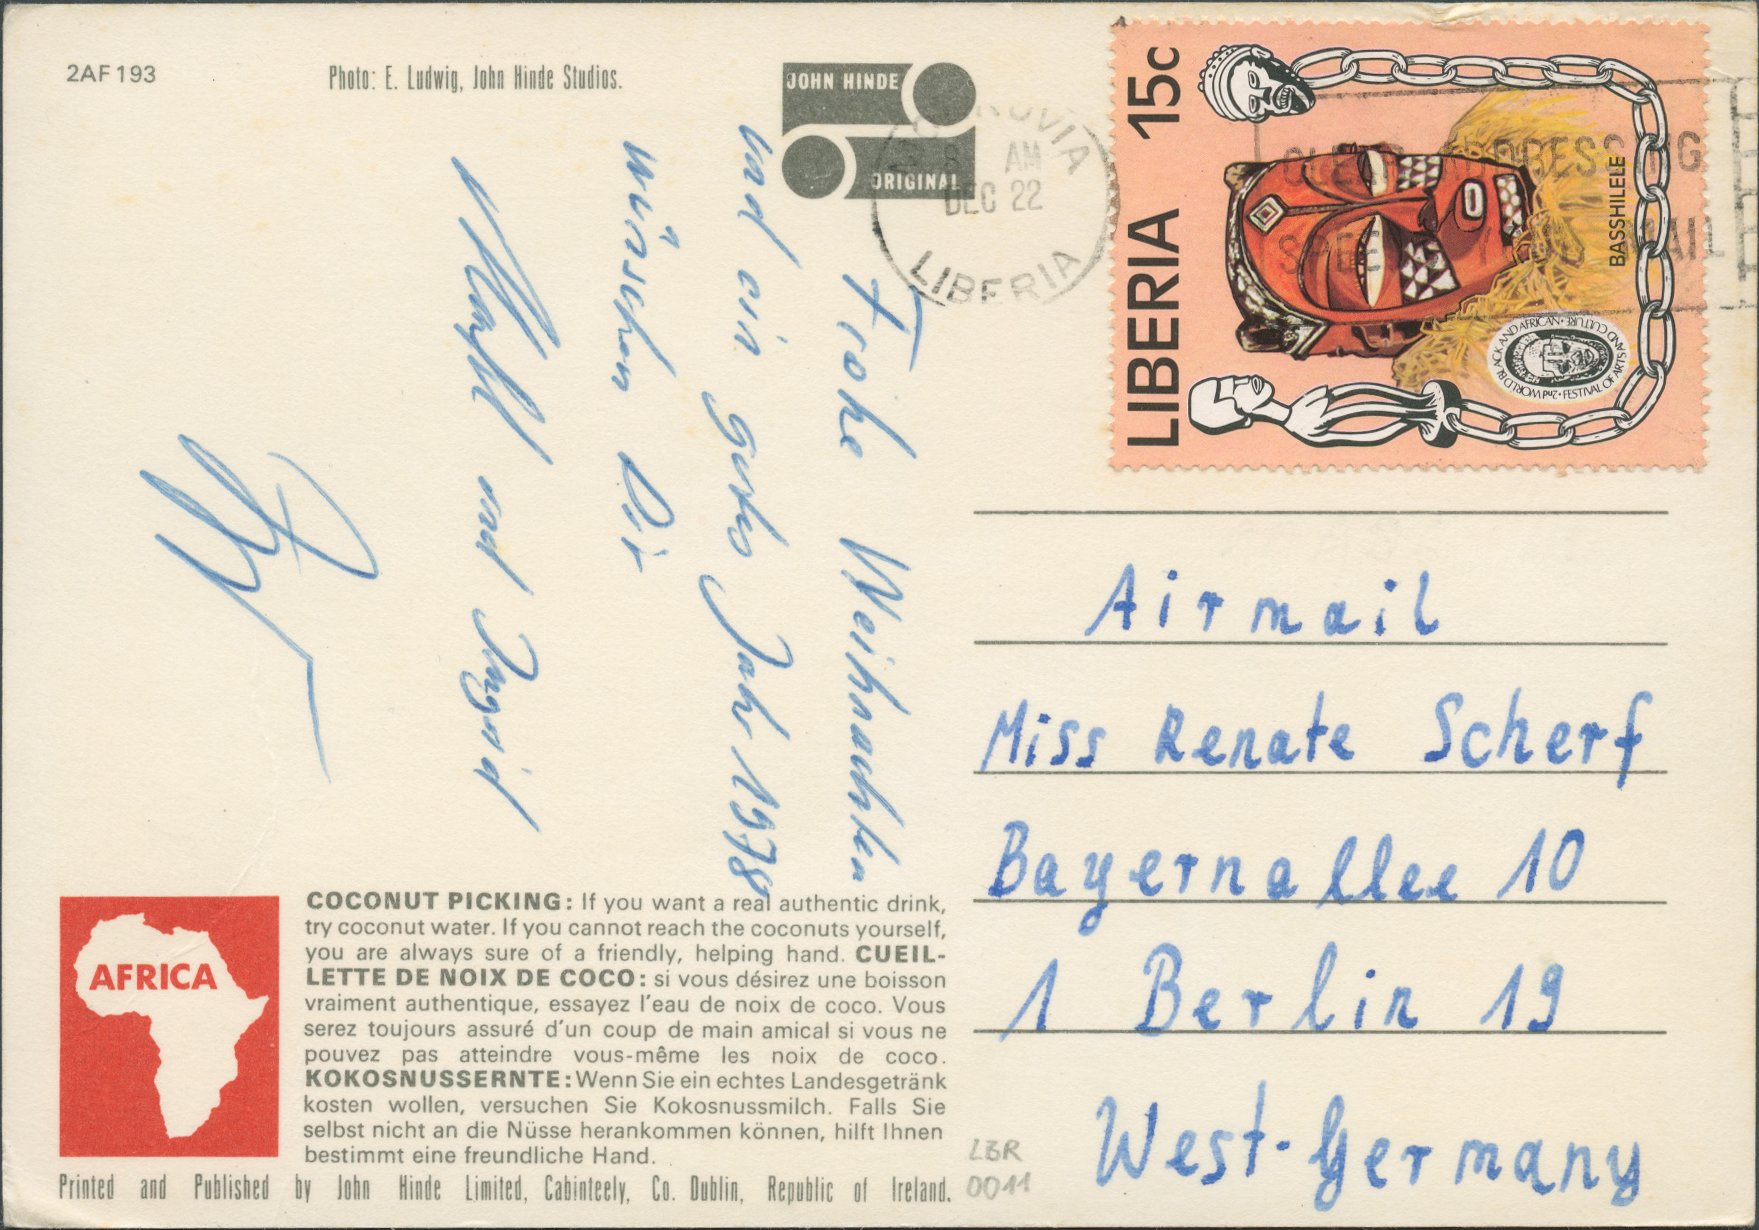 2AF193
Photo: E. Ludwig, John Hinde Studios.
JOHN HINDE
ORIGINAL
AM
DEC 22
LIBERIA
LIBERIA 15c
BASSHILELE
2nd WORLD BLACK AND AFRICAN • FESTIVAL OF ARTS AND CULTURE •
Frohe Weihnachten
und ein gutes Jahr 1978
wünschen Dir
und Ingrid
Airmail
Miss Renate Scherf
Bayernallee 10
1 Berlin 19
West-Germany
AFRICA
COCONUT PICKING: If you want a real authentic drink,
try coconut water. If you cannot reach the coconuts yourself,
you are always sure of a friendly, helping hand. CUEIL-
LETTE DE NOIX DE COCO: si vous désirez une boisson
vraiment authentique, essayez l'eau de noix de coco. Vous
serez toujours assuré d'un coup de main amical si vous ne
pouvez pas atteindre vous-même les noix de coco.
KOKOSNUSSERNTE: Wenn Sie ein echtes Landesgetränk
kosten wollen, versuchen Sie Kokosnussmilch. Falls Sie
selbst nicht an die Nüsse herankommen können, hilft Ihnen
bestimmt eine freundliche Hand.
Printed and Published by John Hinde Limited, Cabinteely, Co. Dublin, Republic of Ireland.
LBR
0011